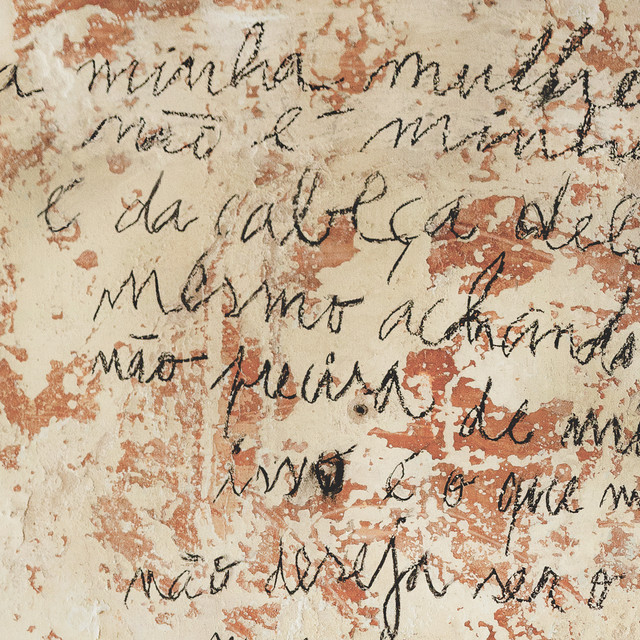 a minha mulhe
não é minha
é da cabeça del
mesmo achando
não precisa de mi
isso é o que m
não deseja ser o